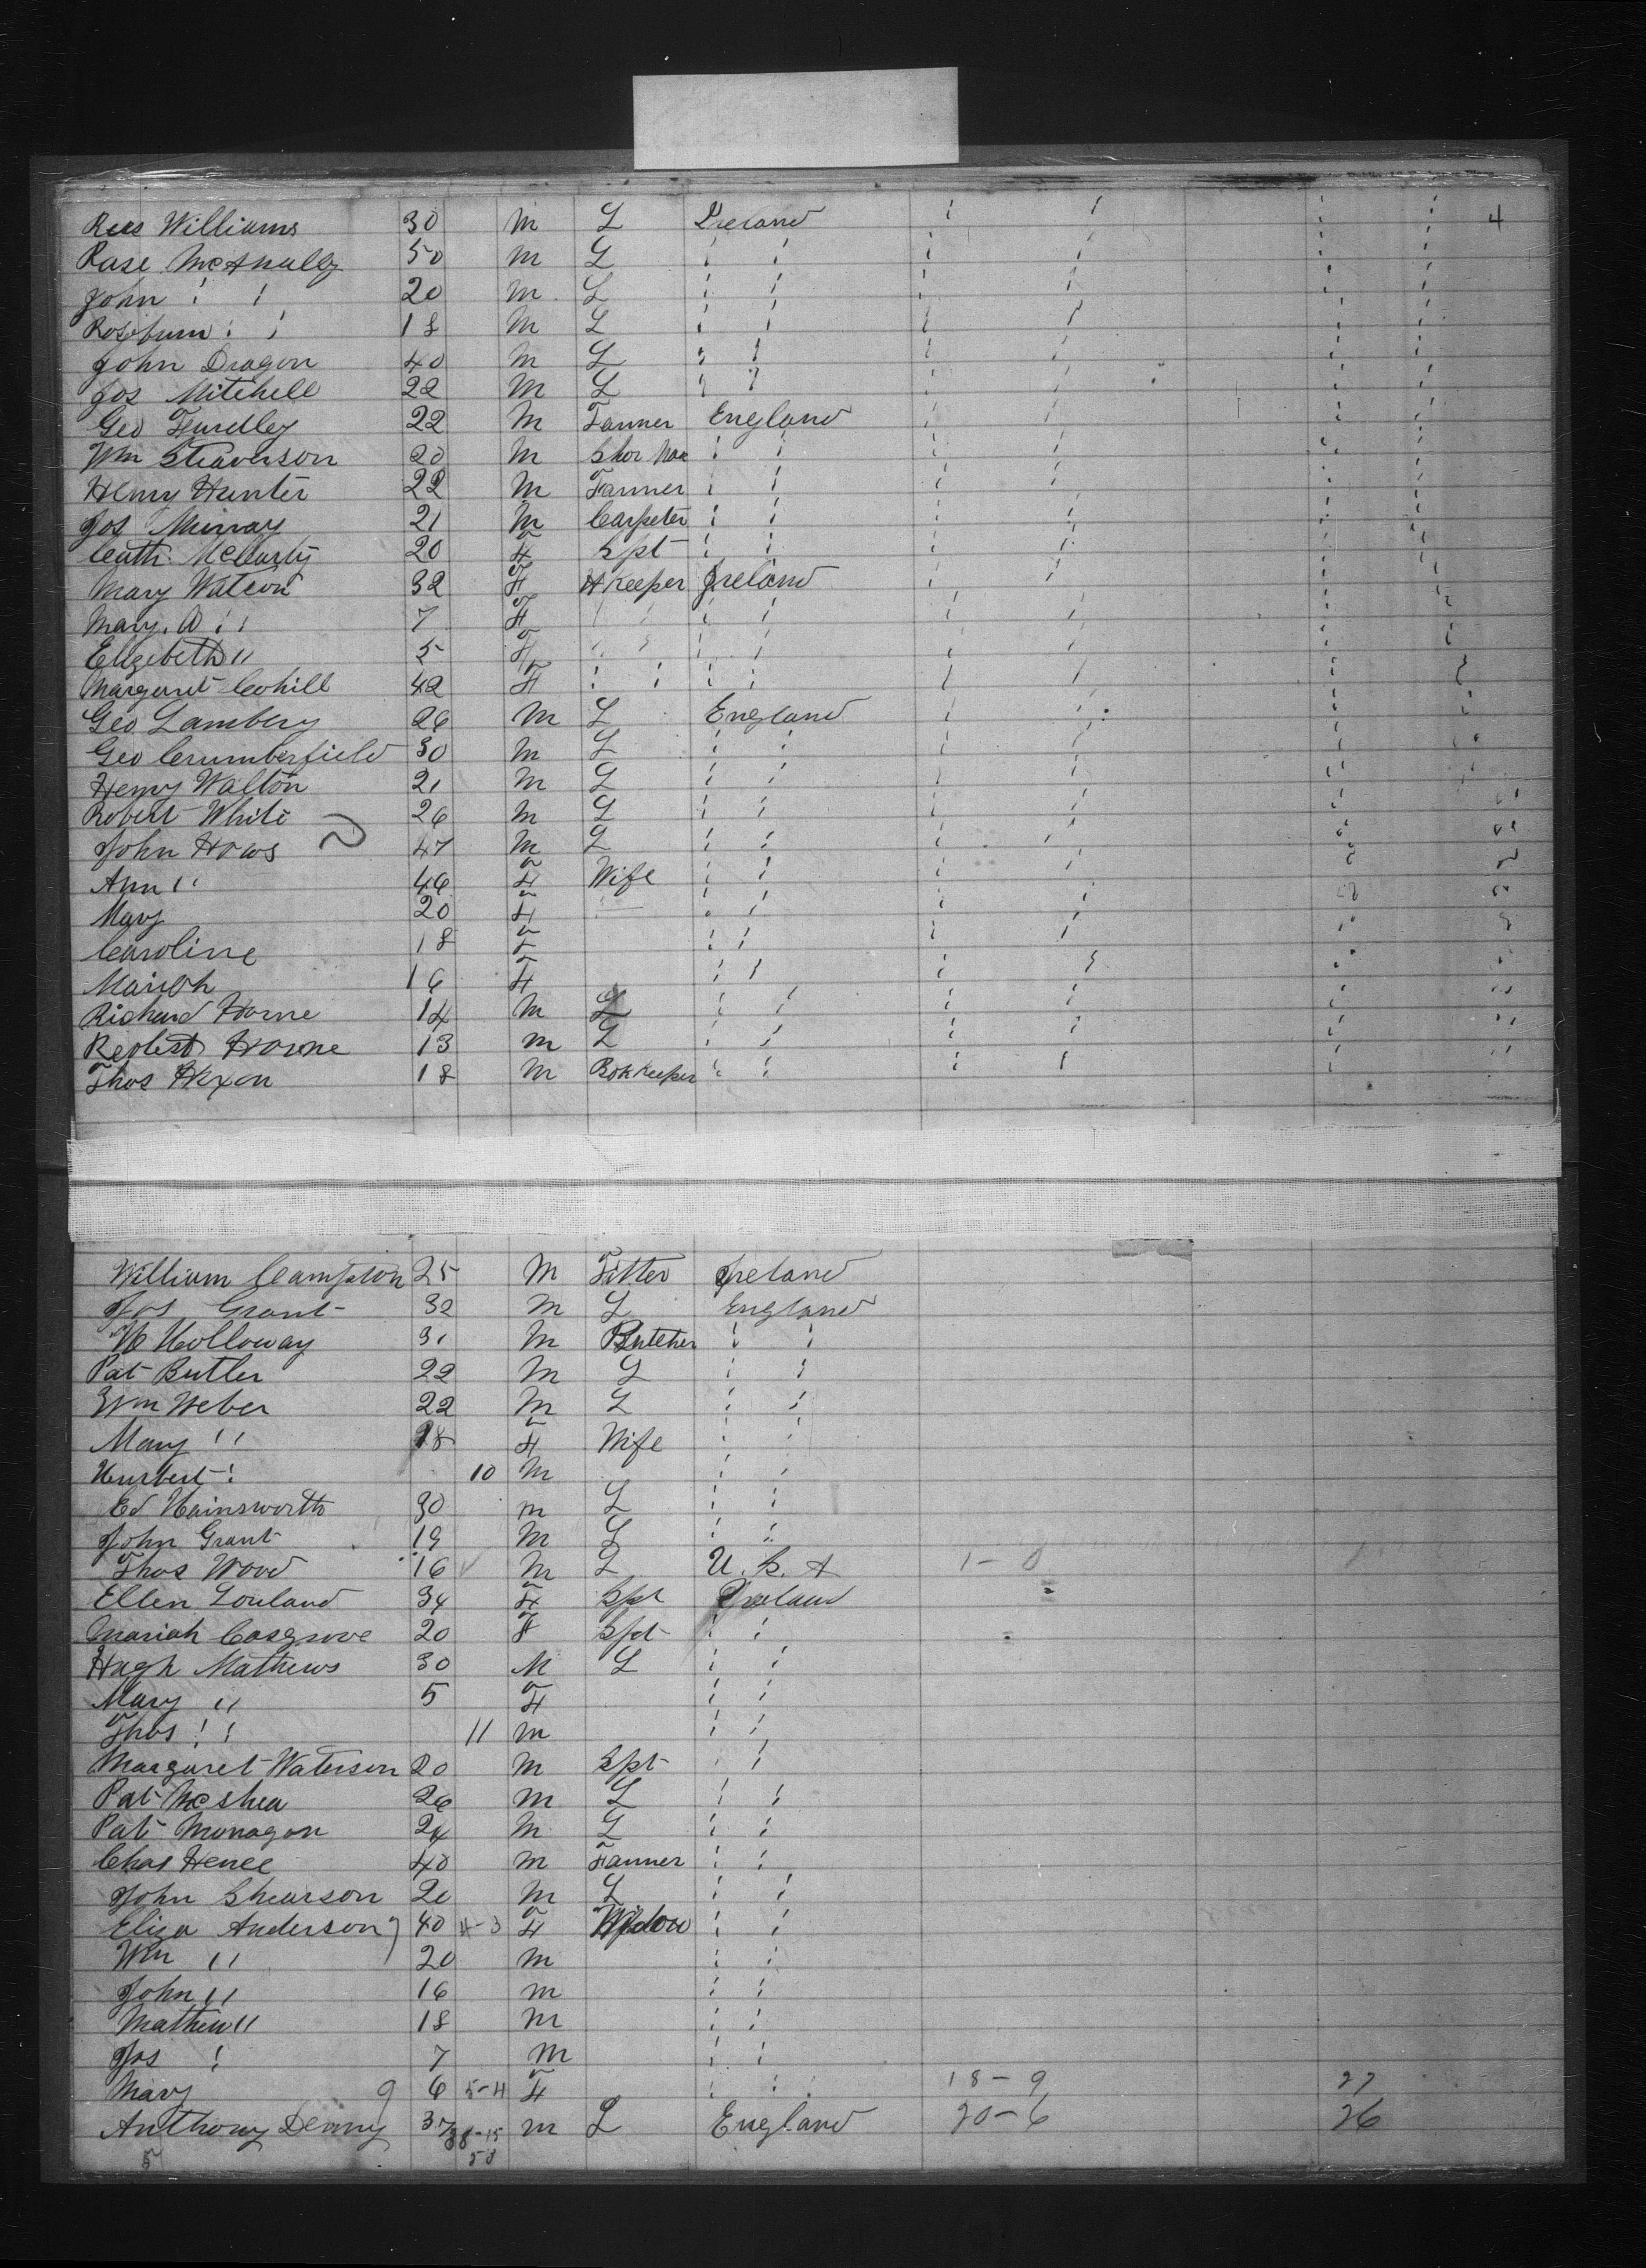 Rees Williams 30 M L Ireland " " " " 4
Rase McAnally 50 M L " " " " " "
John " " 20 M L " " " " " "
Roseburn " " 18 M L " " " " " "
John Dragon 40 M L " " " " " "
Jos Mitchell 22 M L " " " " " "
Geo 22 M Tanner England " " " "
Wm Straverson 20 M Shoe Mak " " " " " "
Henry Hunter 22 M Tanner " " " " " "
Jos Murray 21 M Carpeter " " " " " "
Cath McCarty 20 F Spt " " " " " "
Mary Watson 32 F H Keeper Ireland " " " "
Mary. A " " 7 F " " " " " " " "
Elizebeth " 5 F " " " " " " " "
Margaret Cohill 42 F " " " " " " " "
Geo Lambery 26 M L England " " " "
Geo Crumberfield 30 M L " " " " " "
Henry Walton 21 M L " " " " " "
Robert White 26 M L " " " " " "
John Hows 47 M L " " " " " "
Ann " 46 F Wife " " " " " "
Mary 20 F " " " " " " "
Caroline 18 F " " " " " "
Mariah 16 F " " " " " "
Richard Horne 14 M L " " " " " "
Robert Horne 13 M L " " " " " "
Thos Hixon 18 M Bok Keeper " " " " " "
William Campston 25 M Fitter Ireland
Jos Grant 32 M L England
H Holloway 31 M Butcher " "
Pat Butler 22 M L " "
Wm Weber 22 M L " "
Mary " 18 F Wife " "
Hurbert " 10 M " "
Ed Hainsworth 30 M L " "
John Grant 19 M L " "
Thos Wood 16 M L U. S. A 1 - 0
Ellen Louland 34 F Spt Ireland
Mariah Cosgrove 20 F Spt " "
Hugh Mathews 30 M L " "
Mary " 5 F " "
Thos " " 11 M " "
Margaret Waterson 20 M Spt " "
Pat McShea 26 M L " "
Pat Monagon 24 M L " "
Chas Hence 40 M Tanner " "
John Shearson 20 M L " "
Eliza Anderson 40 4-3 F Widow " "
Wm " 20 M " "
John " 16 M " "
Mathew " 18 M " "
Jos " 7 M " "
Mary 9 6 5-4 F " " 18 - 9 27
Anthony Denny 37 38-15 M L England 20 - 6 26
58